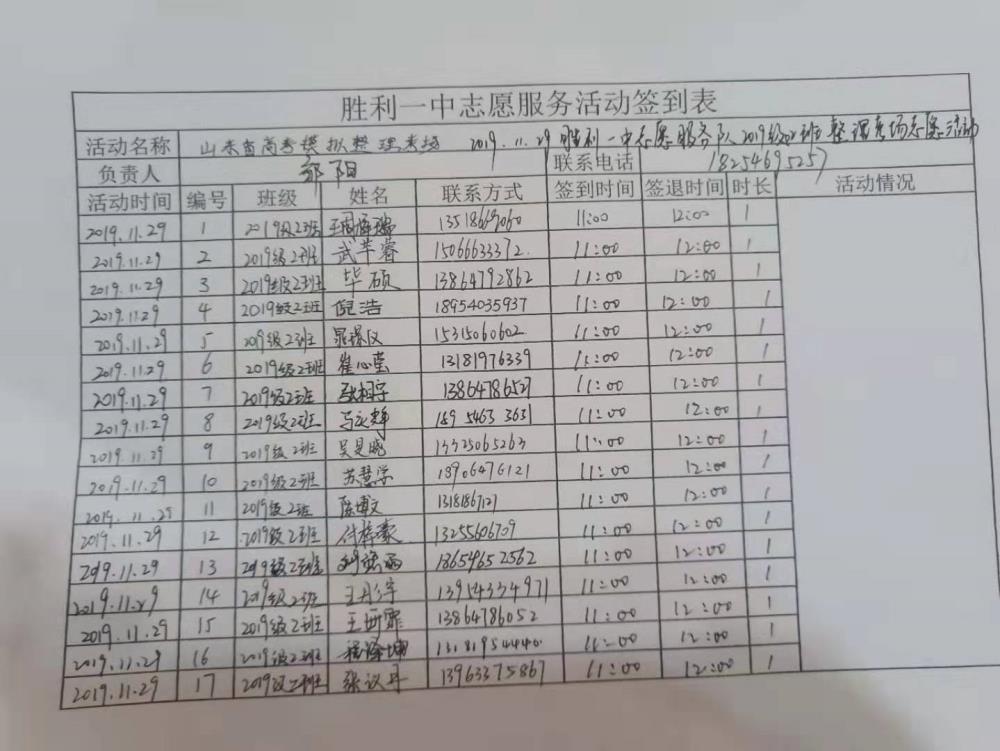 胜利一中志愿服务活动签到表
活动名称 山东省高考模拟整理考场 2019.11.29胜利一中志愿服务队2019级2班整理考场志愿活动
负责人 郭阳 联系电话 18254695257
活动时间 编号 班级 姓名 联系方式 签到时间 签退时间 时长 活动情况
2019.11.29 1 2019级2班 13518669060 11:00 12:00 1
2019.11.29 2 2019级2班 武芊睿 15066633372 11:00 12:00 1
2019.11.29 3 2019级2班 毕硕 13864792862 11:00 12:00 1
2019.11.29 4 2019级2班 倪浩 18954035937 11:00 12:00 1
2019.11.29 5 2019级2班 15315060602 11:00 12:00 1
2019.11.29 6 2019级2班 崔心莹 13181976339 11:00 12:00 1
2019.11.29 7 2019级2班 张栩宇 13864786527 11:00 12:00 1
2019.11.29 8 2019级2班 189 5463 3631 11:00 12:00 1
2019.11.29 9 2019级2班 吴昊晓 13325065263 11:00 12:00 1
2019.11.29 10 2019级2班 苏慧学 18906476121 11:00 12:00 1
2019.11.29 11 2019级2班 陈博文 13181867121 11:00 12:00 1
2019.11.29 12 2019级2班 付梓豪 13255606709 11:00 12:00 1
2019.11.29 13 2019级2班 1865465 2562 11:00 12:00 1
2019.11.29 14 2019级2班 王彤宇 13914334971 11:00 12:00 1
2019.11.29 15 2019级2班 王西霏 13864786052 11:00 12:00 1
2019.11.29 16 2019级2班 13181954440 11:00 12:00 1
2019.11.29 17 2019级2班 张议丹 13963375867 11:00 12:00 1